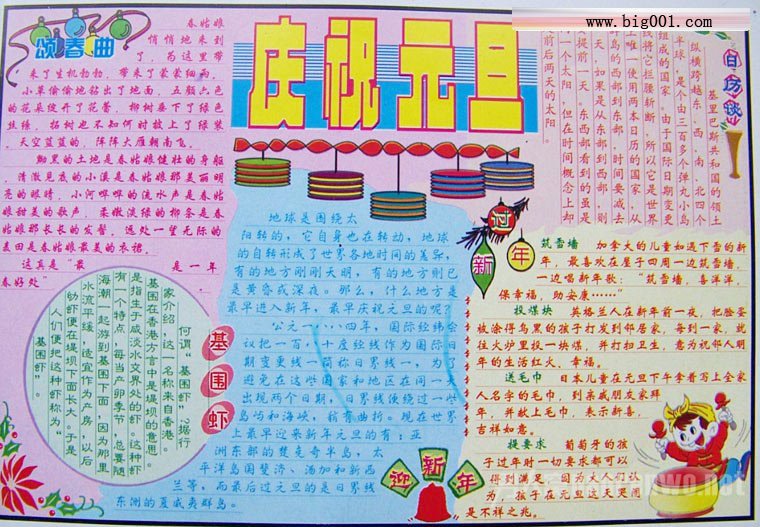 www.big001.com
庆祝元旦
颂春曲
春姑娘
悄悄地来到
了，为这里带
来了生机勃勃，带来了蒙蒙细雨。
小草偷偷地钻出了地面，五颜六色
的花朵绽开了花蕾，柳树垂下了绿色
丝绦，拓树也不知何时披上了绿装。
天空蓝蓝的，阵阵大雁朝南飞。
黝黑的土地是春姑娘健壮的身躯，
清澈见底的小溪是春姑娘那美丽明
亮的眼睛，小河哗哗的流水声是春姑
娘甜美的歌声，柔嫩淡绿的柳条是春
姑娘那长长的发髻，远处一望无际的
麦田是春姑娘最美的衣裙。
这真是“最 是一年
春好处”
基围虾
何谓“基围虾”？据行
家介绍，这一名称来自香港。
基围在香港方言中是堤坝的意思。
是指生于咸淡水交界处的虾。这种虾
有一个特点，每当产卵季节，总要随
海潮一起游到基围下面，因为那里
水流平缓，适宜作为产房，以后
幼虾便在堤坝下面长大。于是，
人们便把这种虾称为“
基围虾”。
地球是围绕太
阳转的，它自身也在转动，地球
的自转形成了世界各地时间的差异，
有的地方刚刚天明，有的地方则已
是黄昏或深夜。那么，什么地方是
最早进入新年，最早庆祝元旦的呢？
公元一八八四年，国际经纬会
议把一百八十度经线作为国际日
期变更线—简称日界线—，为了
避免在这些国家和地区在同一天
出现两个日期，日界线便绕过一些
岛屿和海峡，稍有曲折。现在世界
上最早迎来新年元旦的有：亚
洲东部的楚克奇半岛，太
平洋岛国斐济、汤加和新西
兰等，而最后过元旦的是日界线
东测的夏威夷群岛。
日历谈
基里巴斯共和国的领土
纵横跨越东、西、南、北四个
半球，是个由三百多个弹九小岛
组成的国家，由于国际日期变更
线将它拦腰斩断，所以它是世界
上唯一使用两本日历的国家，从
岛的西部到东部，时间要减去
一天，如果是从东部到西部，则
要提前一天。东西都看到的虽是
同一个太阳，但在时间概念上却
是前后两天的太阳。
过新年
筑雪墙 加拿大的儿童如遇下雪的新
年，最喜欢在屋子四周一边筑雪墙，
一边唱新年歌：“筑雪墙，喜洋洋，
保幸福，助安康……”
投煤块 英格兰人在新年前一夜，把脸蛋
被涂得乌黑的孩子打发到邻居家，每到一家，就
往火炉里投一块煤，并打扫卫生，意为祝邻人明
年的生活红火、幸福。
送毛巾 日本儿童在元旦下午拿着写上全家
人名字的毛巾，到亲戚朋友家拜
年，并献上毛巾，表示新喜，
吉祥如意。
提要求 葡萄牙的孩
子过年时一切要求都可以
得到满足，因为大人们认
为，孩子在元旦这天哭闹
是不祥之兆。
迎新年